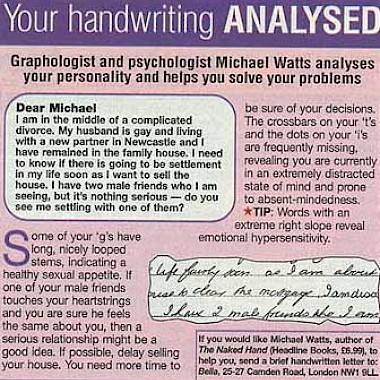 Your handwriting ANALYSED
Graphologist and psychologist Michael Watts analyses
your personality and helps you solve your problems
Dear Michael
I am in the middle of a complicated
divorce. My husband is gay and living
with a new partner in Newcastle and I
have remained in the family house. I need
to know if there is going to be settlement
in my life soon as I want to sell the
house. I have two male friends who I am
seeing, but it's nothing serious — do you
see me settling with one of them?
Some of your 'g's have
long, nicely looped
stems, indicating a
healthy sexual appetite. If
one of your male friends
touches your heartstrings
and you are sure he feels
the same about you, then a
serious relationship might be a
good idea. If possible, delay selling
your house. You need more time to
be sure of your decisions.
The crossbars on your 't's
and the dots on your 'i's
are frequently missing,
revealing you are currently
in an extremely distracted
state of mind and prone
to absent-mindedness.
★TIP: Words with an
extreme right slope reveal
emotional hypersensitivity.
life fairly soon as I am almost
to clear the message, I am
I have 2 male friends who I am
If you would like Michael Watts, author of
The Naked Hand (Headline Books, £6.99), to
help you, send a brief handwritten letter to:
Bella, 25-27 Camden Road, London NW1 9LL.